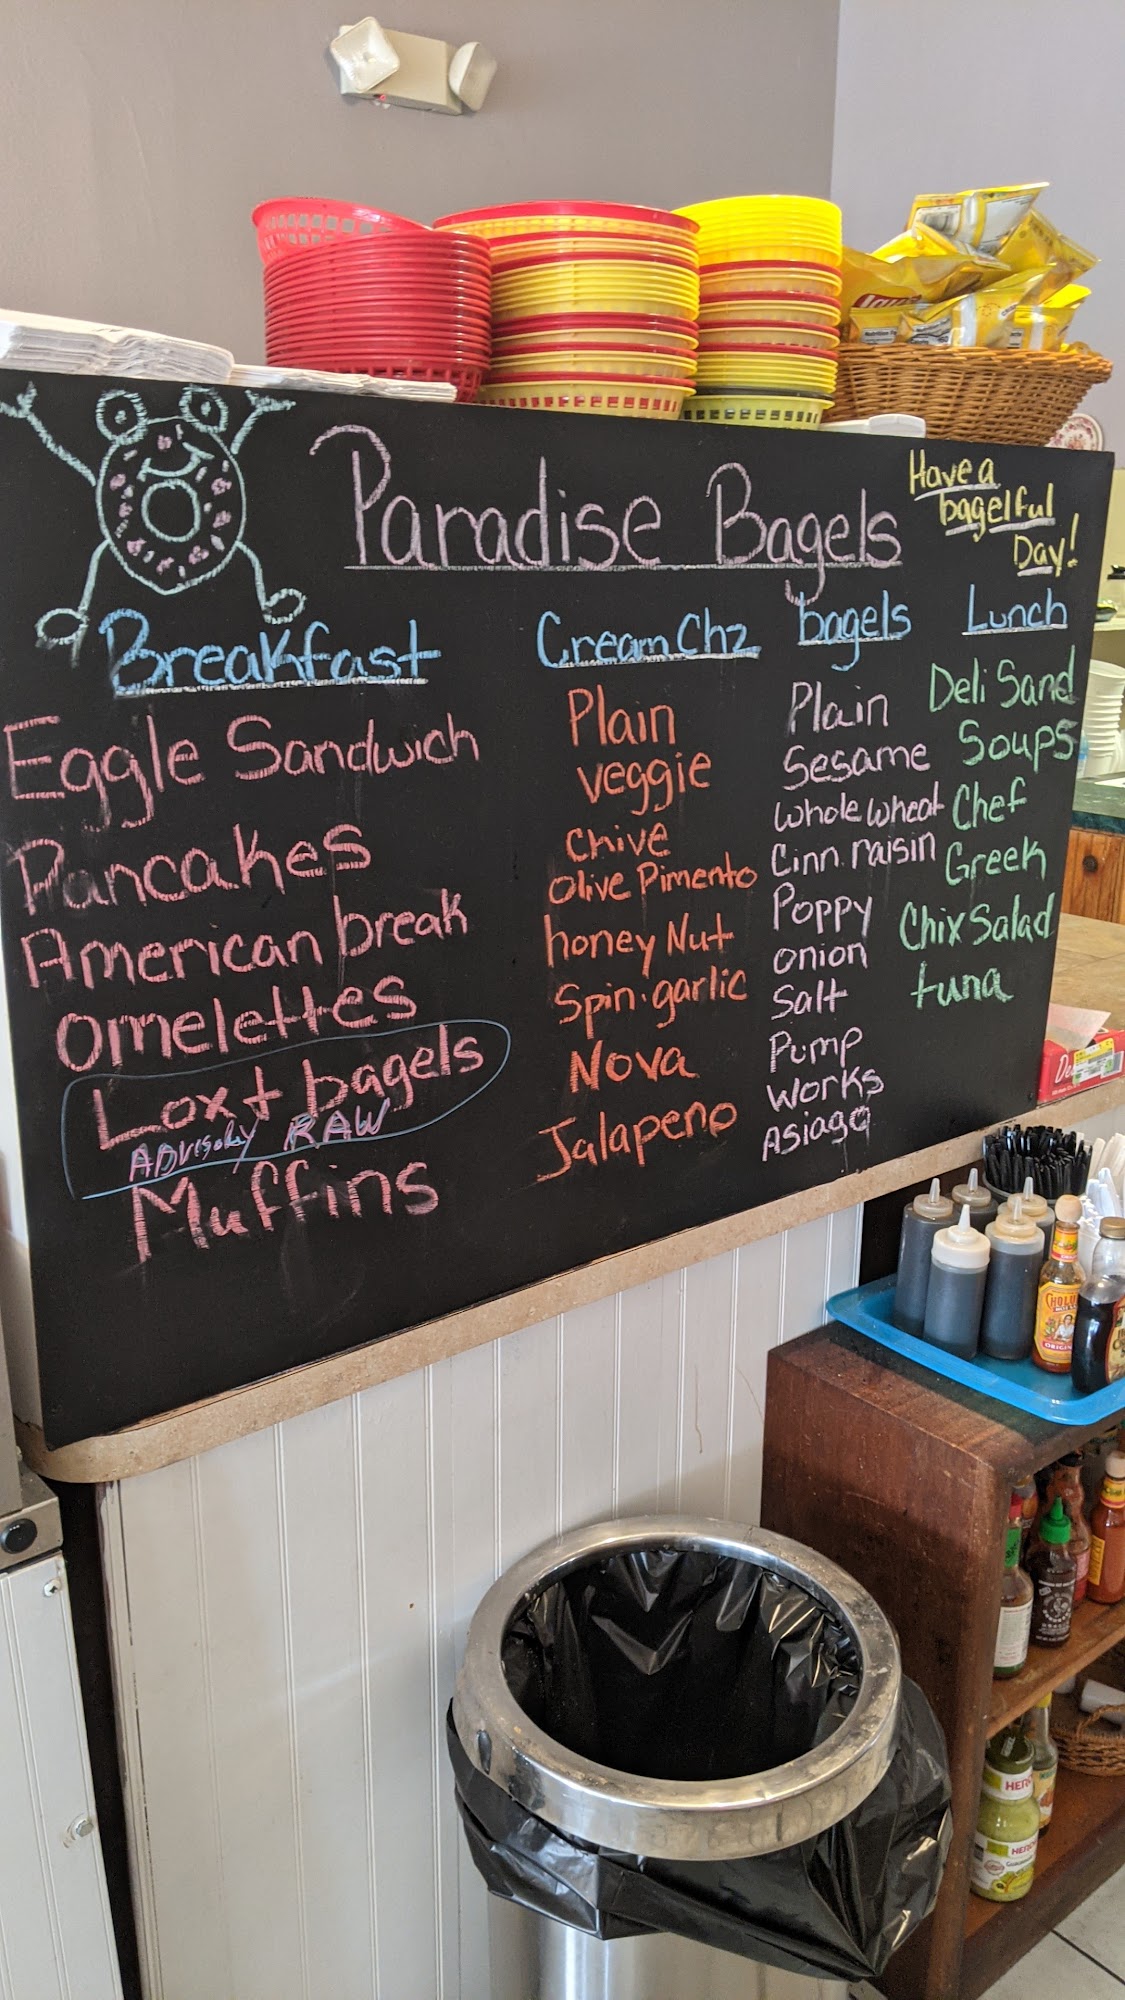 Paradise Bagels
Have a
bagelful
Day!
Breakfast
Eggle Sandwich
Pancakes
American break
omelettes
Lox + bagels
Advisory RAW
Muffins
Cream Chz
Plain
veggie
chive
Olive Pimento
honey Nut
Spin. garlic
Nova
Jalapeno
bagels
Plain
Sesame
whole wheat
Cinn. raisin
Poppy
onion
Salt
Pump
works
Asiago
Lunch
Deli Sand
Soups
Chef
Greek
Chix Salad
tuna
CHOLU
ORIGIN
HERD